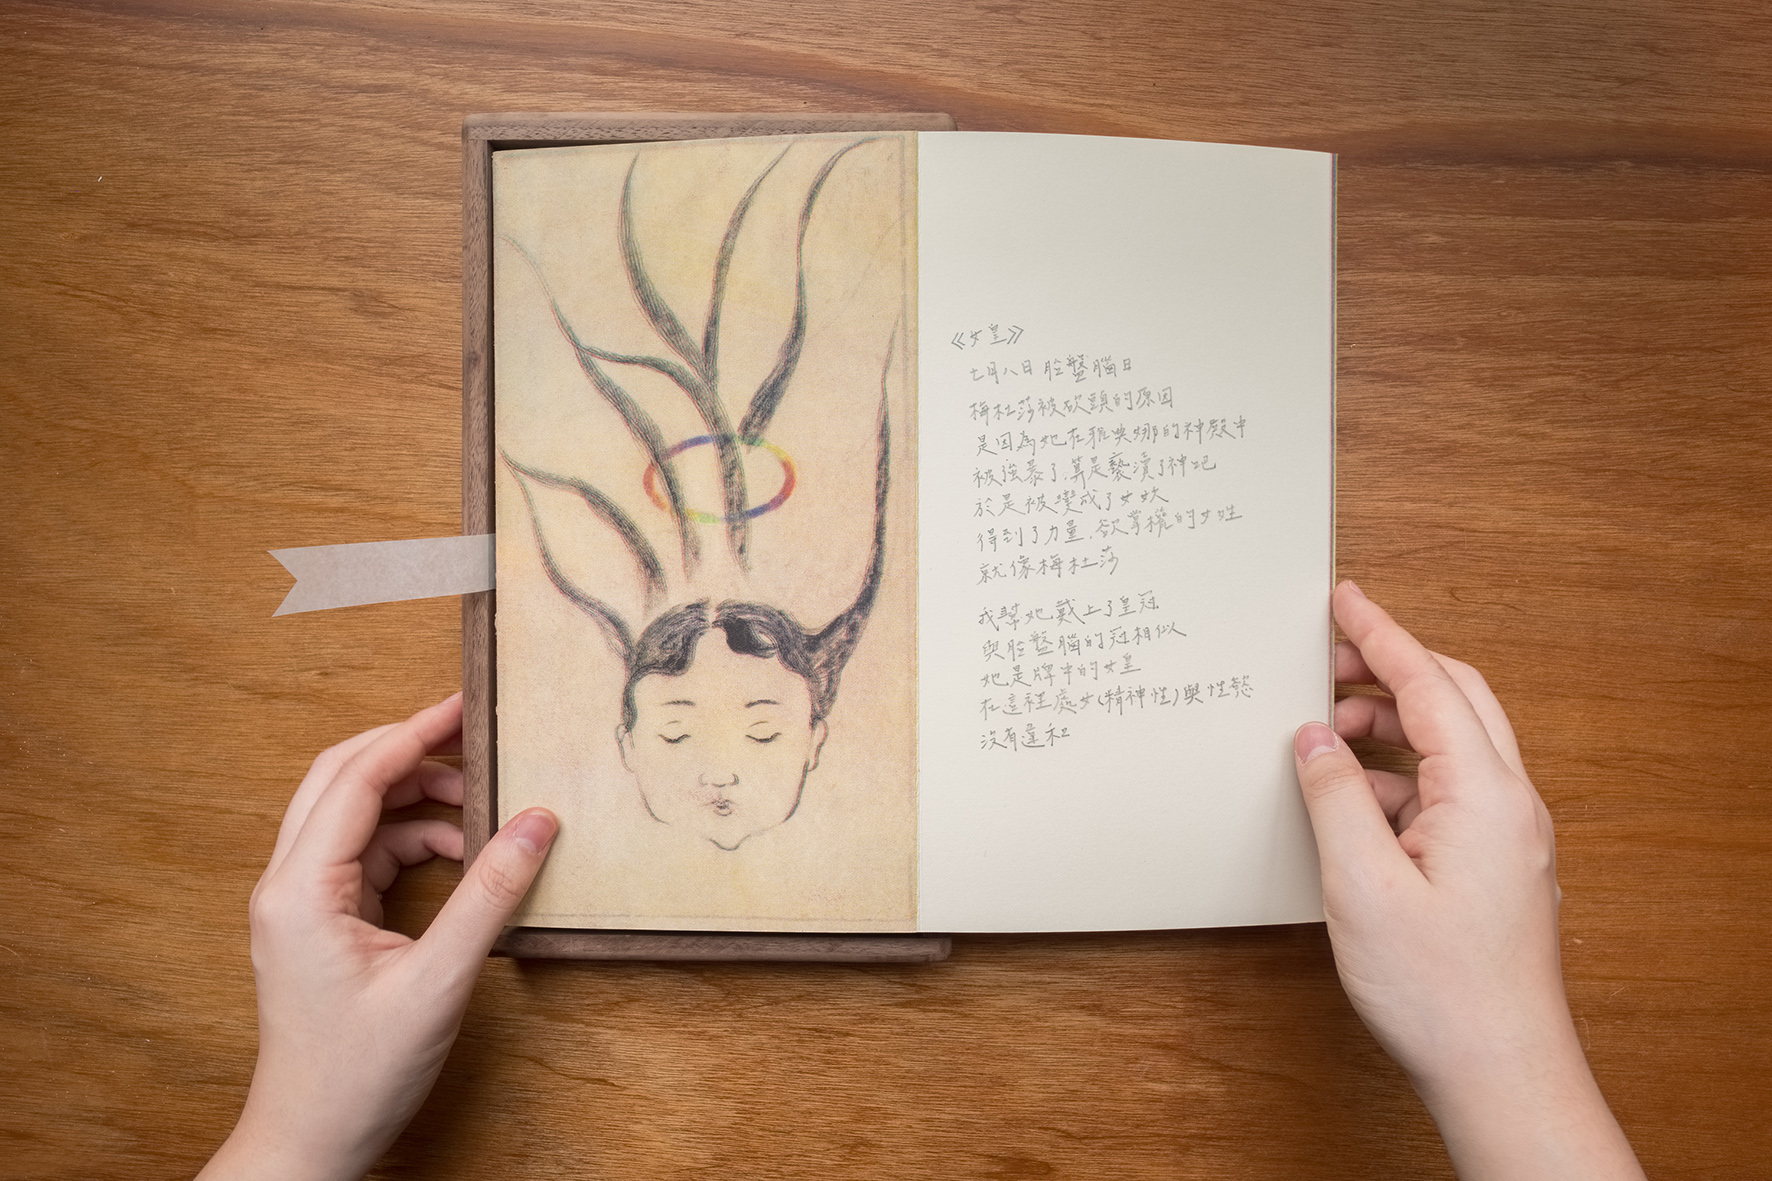 《女皇》
七月八日 臉盤腦日
梅杜莎被砍頭的原因
是因為她在雅典娜的神殿中
被強暴了，算是褻瀆了神祂
於是被變成了女妖
得到了力量，欲掌權的女性
就像梅杜莎
我幫她戴上了皇冠
與臉盤腦的冠相似
她是牌中的女皇
在這裡處女(精神性)與性慾
沒有違和